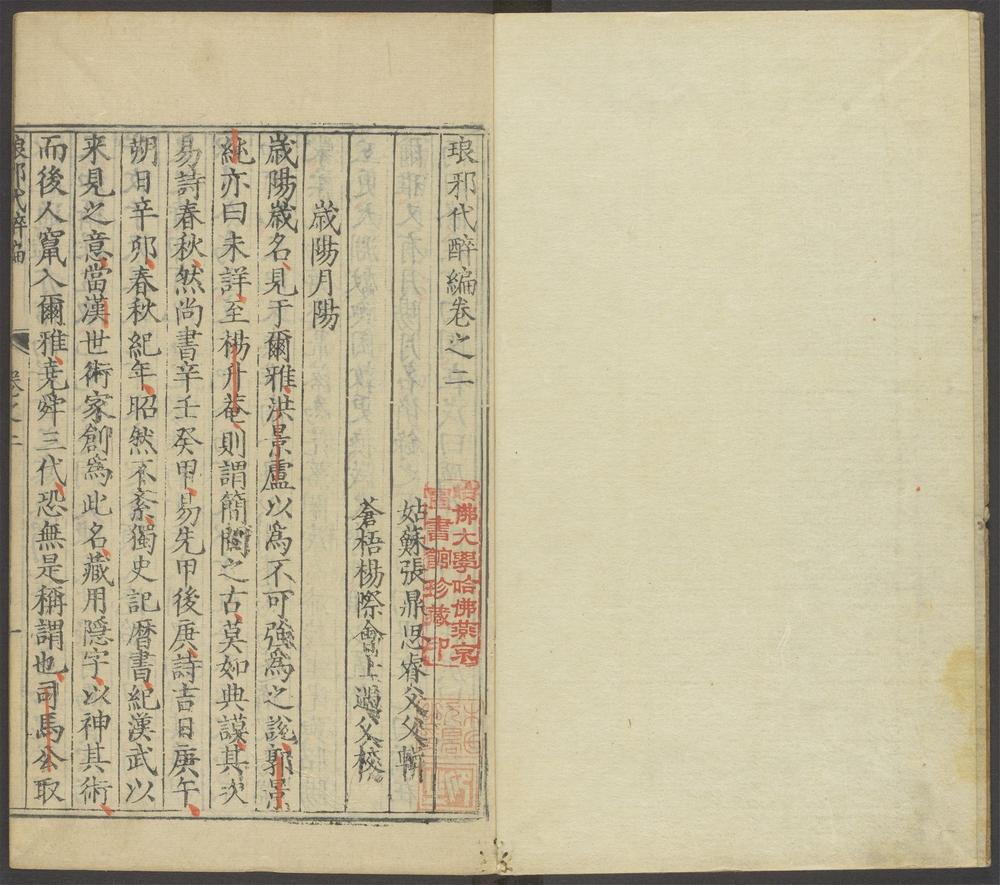 琅邪代醉編卷之二
姑蘇張鼎思睿父父輯
蒼梧楊際會士遇父校
歲陽月陽
歲陽歲名見于爾雅洪景盧以為不可強為之說郭景
純亦曰未詳至楊升菴則謂簡閱之古莫如典謨其次
易詩春秋然尚書辛壬癸甲易先甲後庚詩吉日庚午
朔日辛卯春秋紀年昭然不紊獨史記曆書紀漢武以
来見之意當漢世術家創為此名藏用隱字以神其術
而後人竄入爾雅堯舜三代恐無是稱謂也司馬公取
琅邪代醉編
卷之二
一
哈佛大學哈佛燕京
圖書館珍藏印